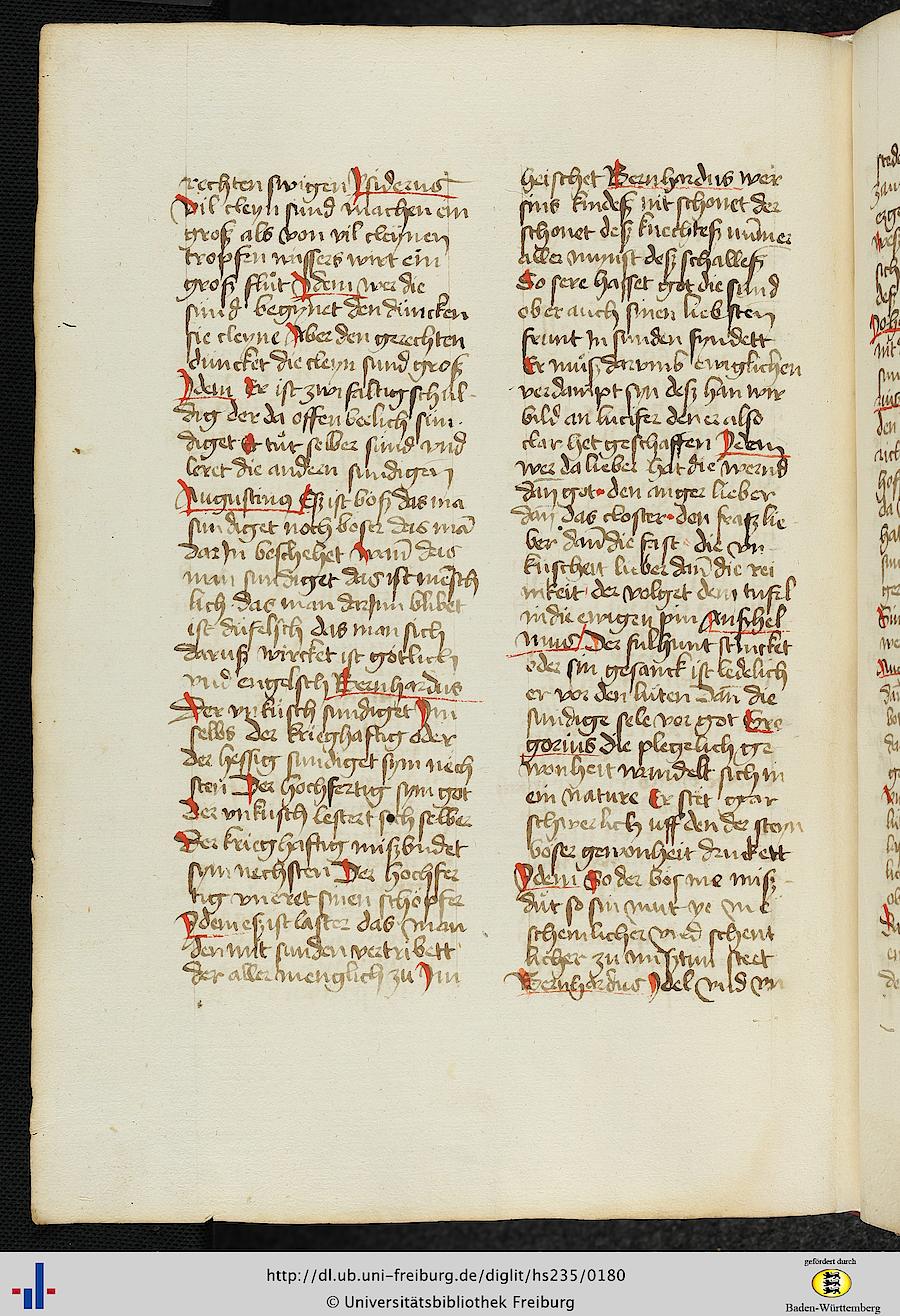 rechten swigen Ysiderus
Vil cleyn sund machen ein
groß als von vil cleynen
tropfen wassers wirt ein
groß flůt Ydem wer die
sund begynet den duncken
sie cleyne Aber den gerechten
duncket die cleyn sund groß
Ydem Er ist zwifaltig schul
dig der da offenberlich sun
diget Er tůt selber sund vnd
leret die andern sundigen
Augustinus Eß ist böß das ma
sundiget noch böser das mā
dar In beschehet wann das
man sundiget das ist mēsch
lich das man dar jnn blibet
ist düfelsch das man sich
daruß wircket ist gotlich
vnd engelsch Bernhardus
Der vnkusch sundiget Im
selbs der krieghaftig oder
der hessig sundiget sym nech
sten Der hochfertig sym got
Der vnkusch lestert sich selber
Der krieghaftig mißbudet
sym nechsten Der hochfer
tig vneret sinen schöpfer
Ydem eß ist laster das man
den mit sunden vertribett
der aller menglich zu Im
heischet Bernhardus wer
sins kindeß nit schonet der
schonet deß knechteß nūmer
aller minst deß schalleß
So sere hasset got die sund
ober auch sinen liebsten
frunt In sunden fyndett
Er můß darumb ewiglichen
verdampt syn deß han wir
bild an lucifer den er also
clar het geschaffen Ydem
wer da lieber hat die wernd
dan got den anger lieber
dan das closter den fraß lie
ber dan die fast die vn
kuscheit lieber dan die rei
nikeit der volget dem tufel
in die ewigen pin Anshel
mus Der ful hunt stincket
oder sin gesanck ist ledelich
er vor den luten Dan die
sundige sele vor got Gre
gorius die plegelich ge
wonheit wandelt sich in
ein nature Er stet gar
schwerlich uff den der steyn
böser gewonheit druckett
Ydem So der böß me miß
dut so sin mut ye me
schemlicher vnd schent
licher zu mißtun steet
Bernhardus Ydel vnd vn
http://dl.ub.uni-freiburg.de/diglit/hs235/0180
© Universitätsbibliothek Freiburg
gefördert durch
Baden-Württemberg